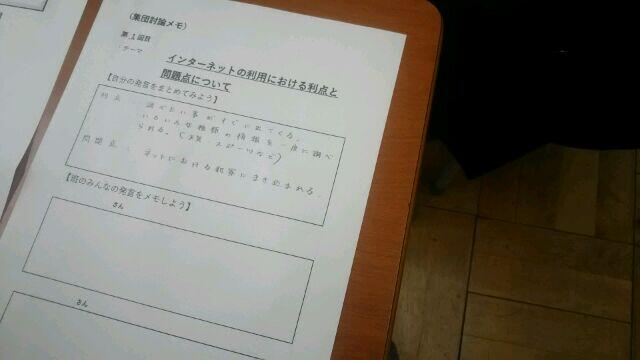 （集団討論メモ）
第 1 回目
テーマ
インターネットの利用における利点と
問題点について
【自分の発言をまとめてみよう】
利点 調べたい事がすぐに出てくる。
いろいろな種類の情報を一度に調べ
られる。(天気 スポーツなど)
問題点 ネットにおける犯罪にまき込まれる。
【班のみんなの発言をメモしよう】
さん
さん